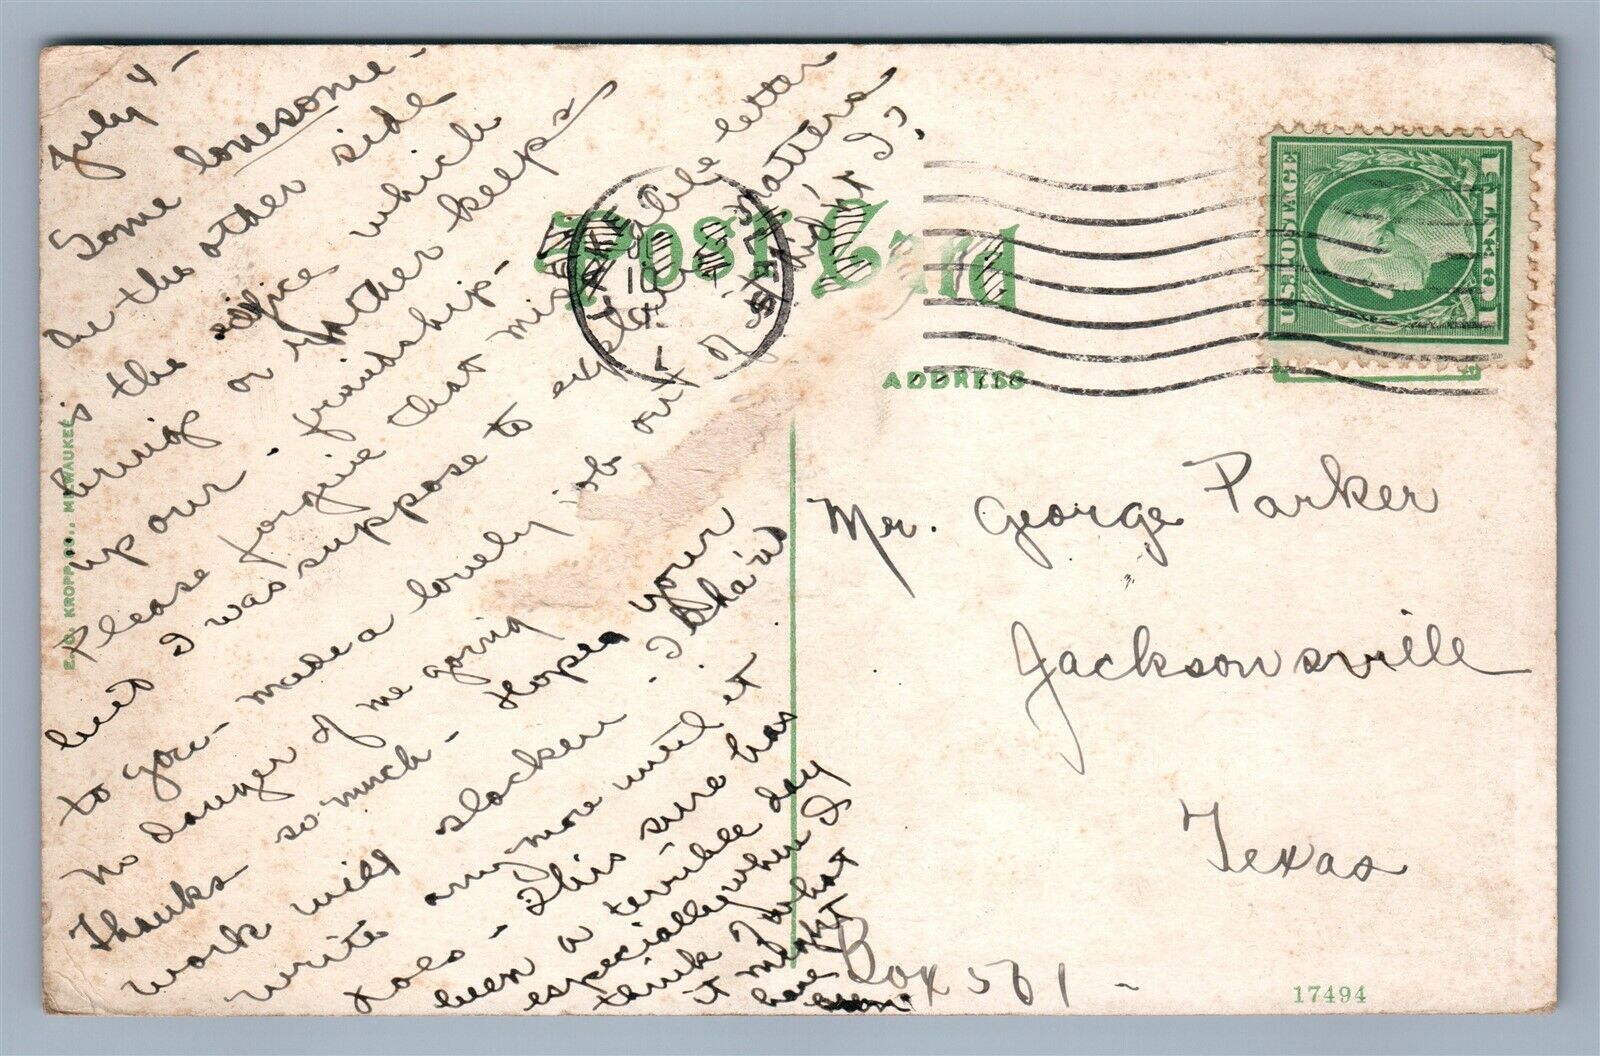 July 4 -
Some lonesome -
On the other side
is the office which
bring or rather keeps
up our. friendship -
Please forgive that miserable letter
but I was suppose to explain matters
to you - made a lovely job out of it didn't I?
No danger of me going
Thanks so much - Hopes your
work will slacken. I shan't
write any more until it
does - This sure has
been a terrible day
especially when I
think of what
it might
have
been.
Post Card
ADDRESS
U.S. POSTAGE
1 CENT 1
Mr. George Parker
Jacksonsville
Texas
Box 561 -
17494
E.C. KROPP CO., MILWAUKEE